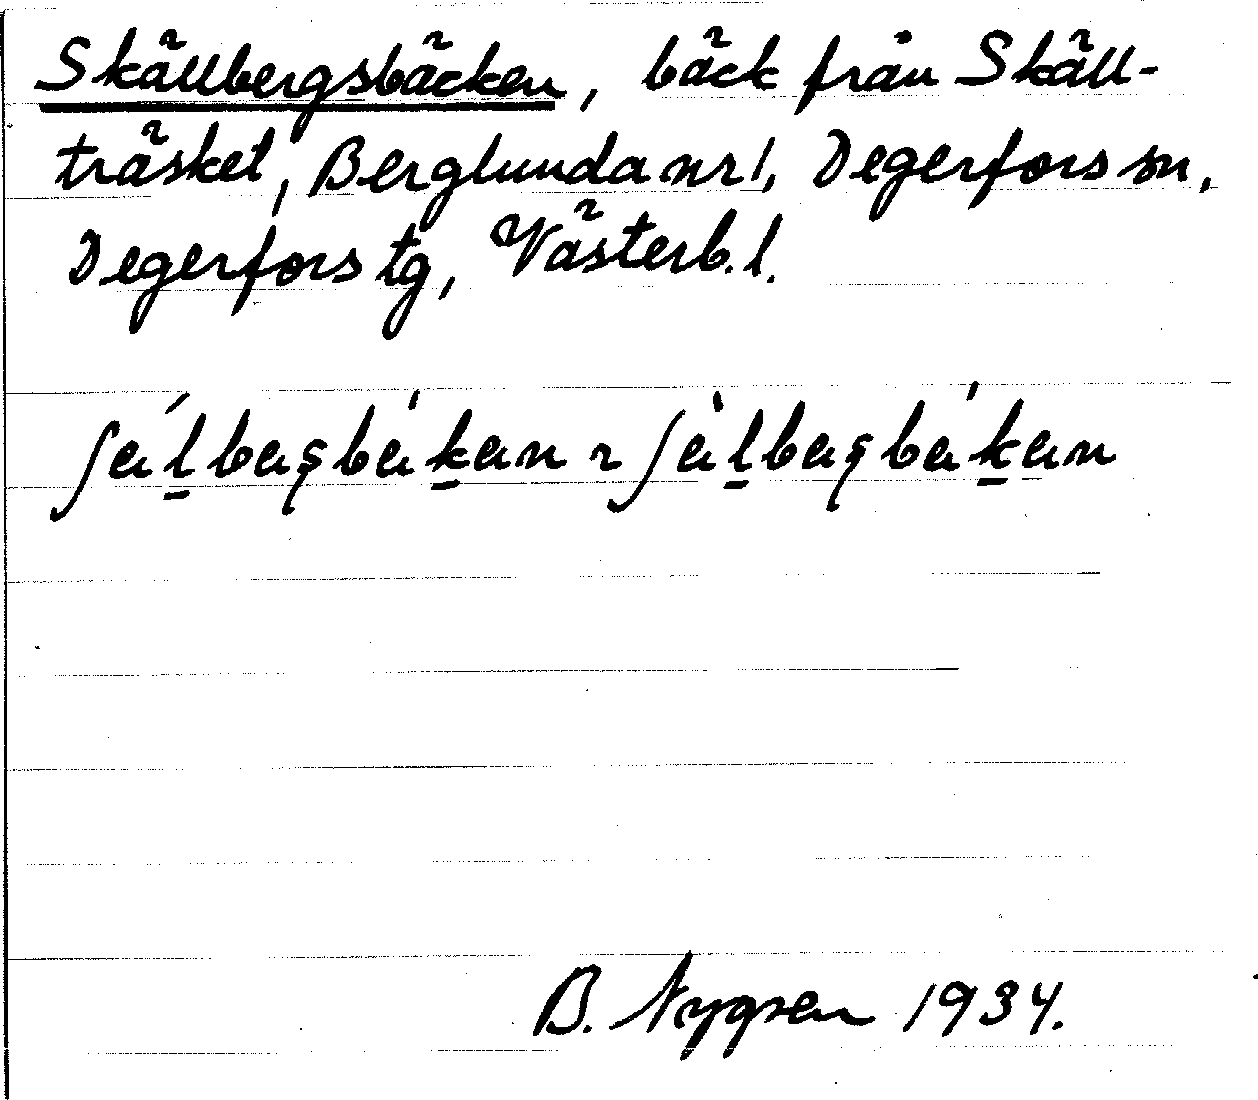 Skällbergsbäcken, bäck från Skäll-
träsket, Berglunda nr 1, Degerfors sn,
Degerfors tg, Västerb. l.
B. Nygren 1934.